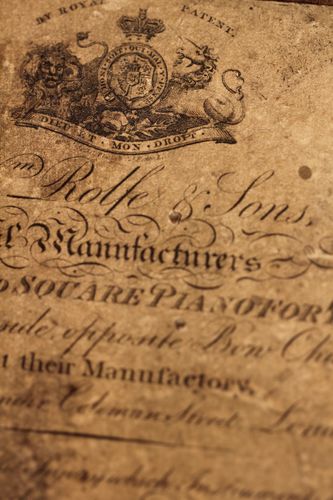 BY ROYAL PATENT.
HONI SOIT QUI MAL Y PENSE
DIEU ET MON DROIT
Rolfe & Sons,
Manufacturers
SQUARE PIANOFOR
opposite Bow Ch
t their Manufactory,
Coleman Street, Lon
which